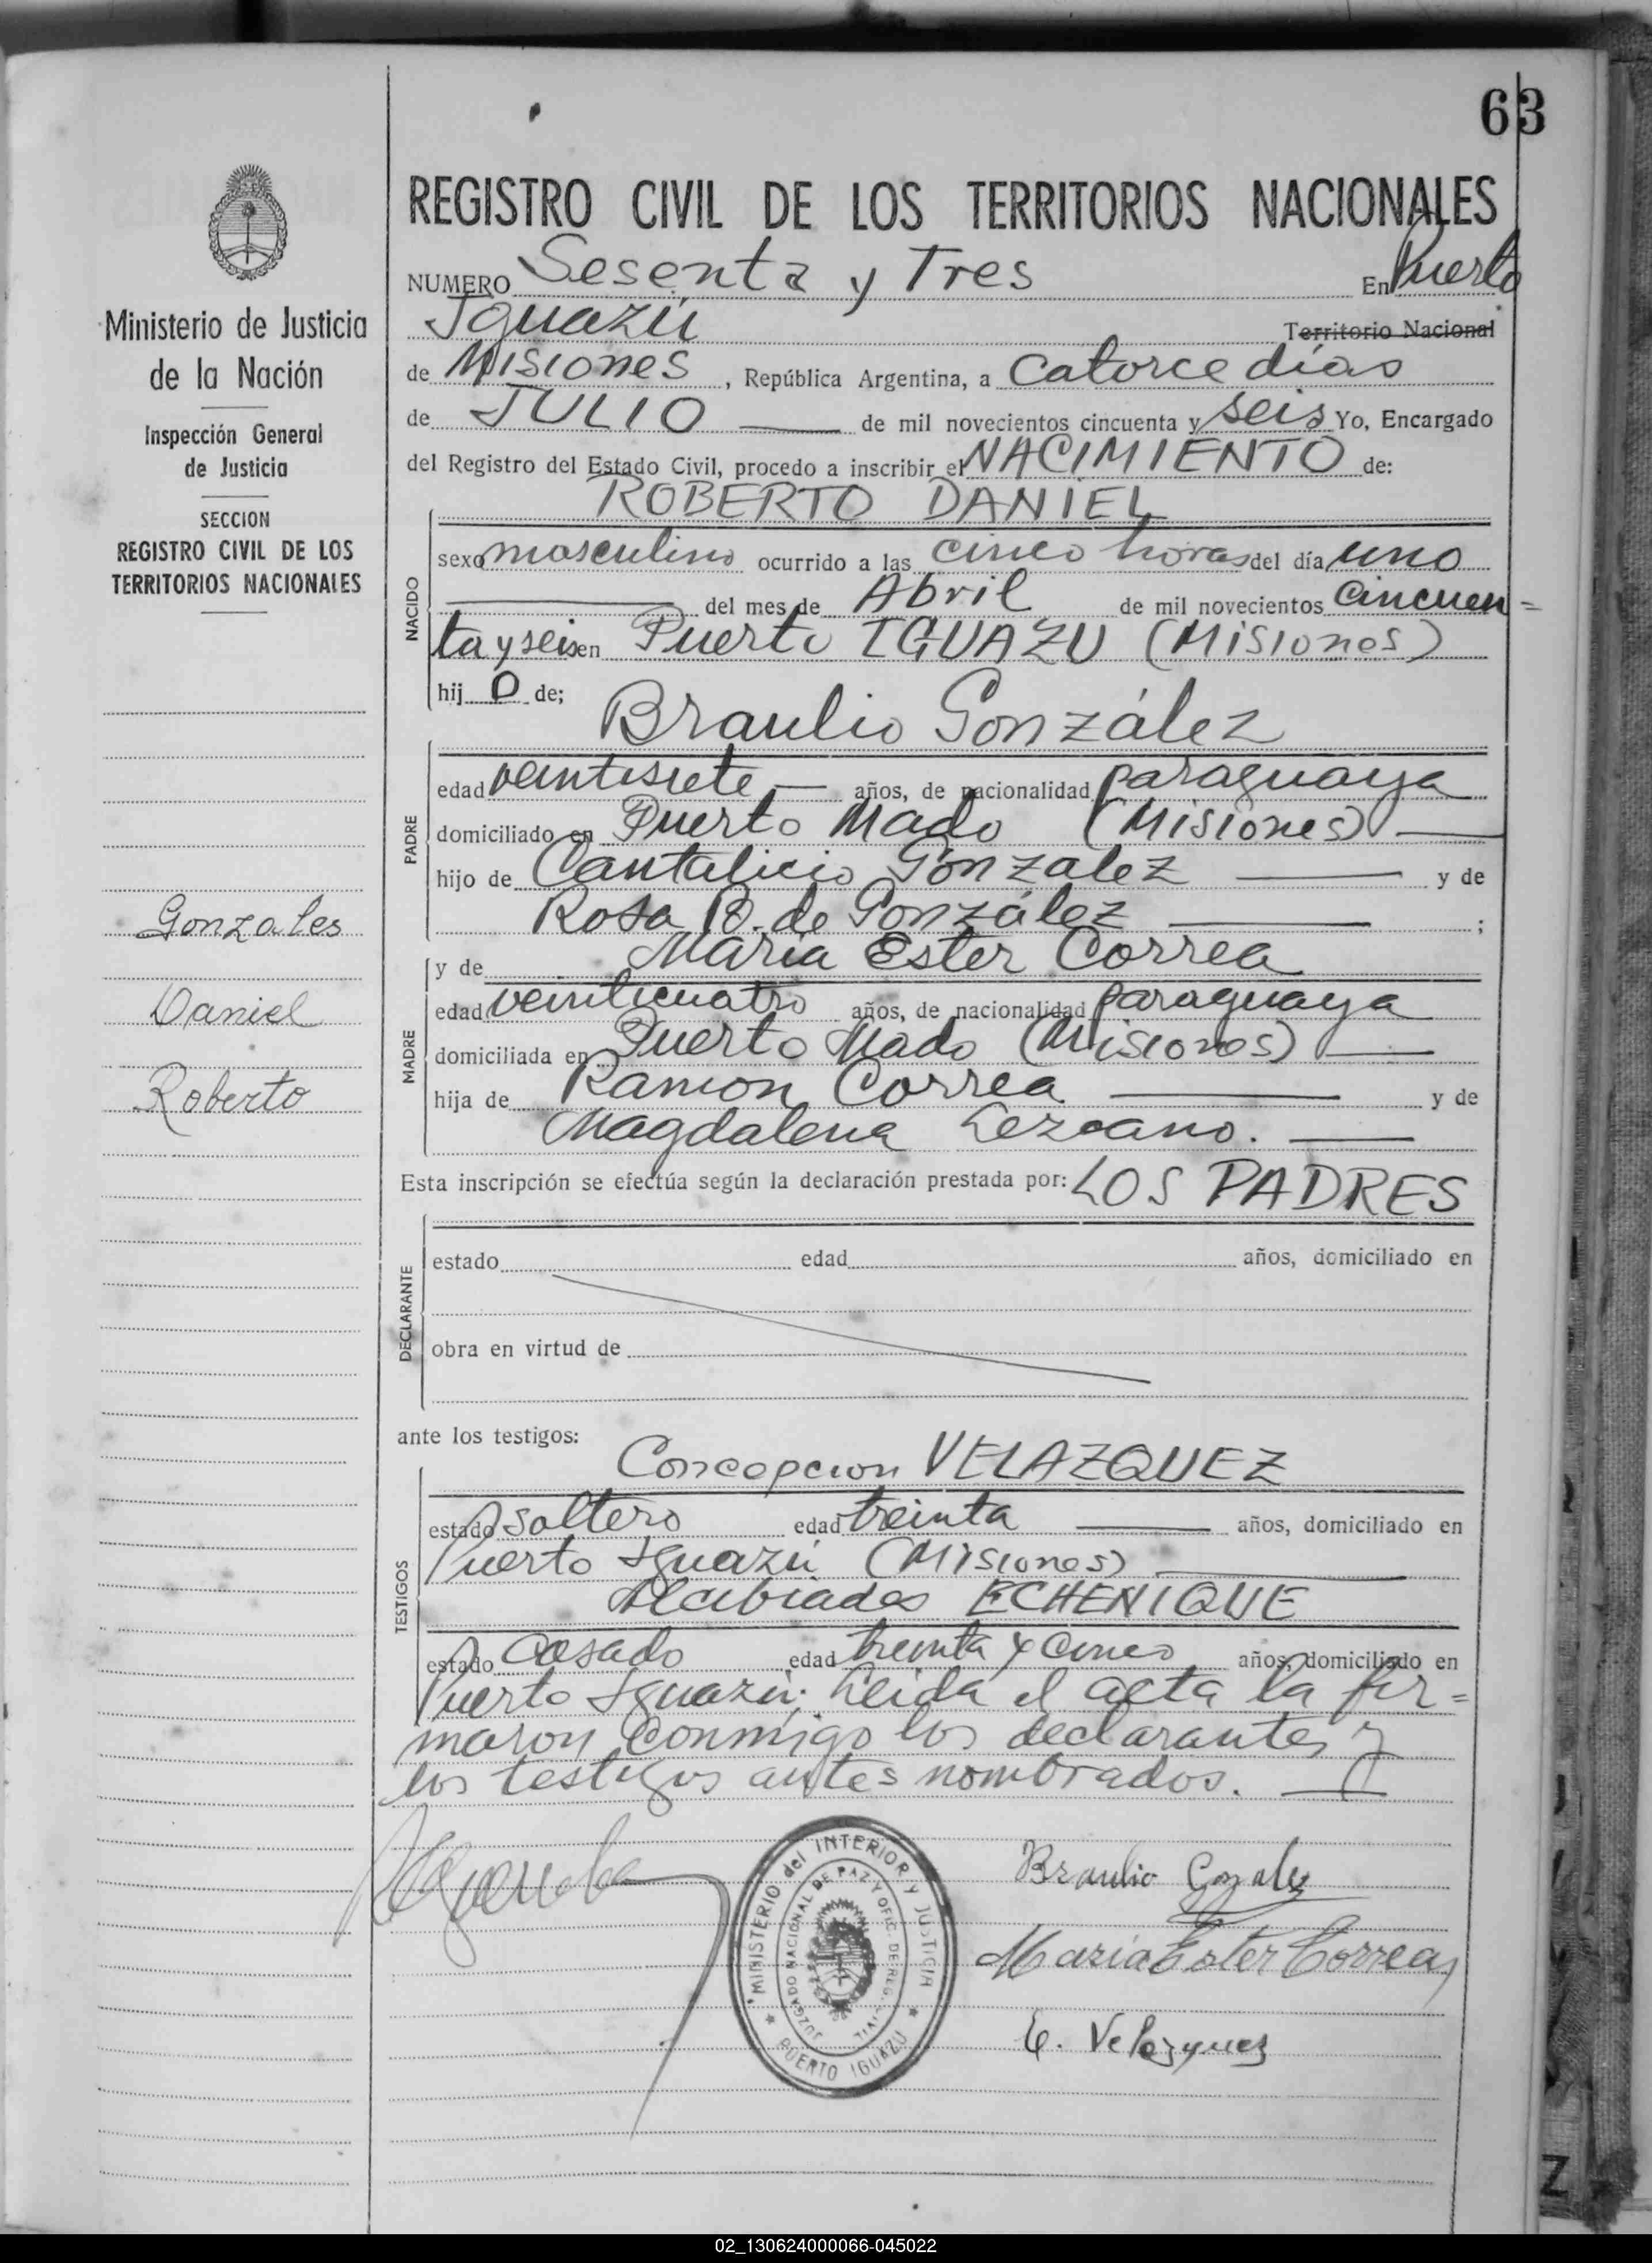 63
REGISTRO CIVIL DE LOS TERRITORIOS NACIONALES
NUMERO Sesenta y Tres En Puerto
Iguazú Territorio Nacional
de Misiones, República Argentina, a catorce días
de JULIO de mil novecientos cincuenta y seis Yo, Encargado
del Registro del Estado Civil, procedo a inscribir el NACIMIENTO de:
ROBERTO DANIEL
NACIDO
sexo masculino ocurrido a las cinco horas del día uno
del mes de Abril de mil novecientos cincuen=
ta y seis en Puerto IGUAZU (Misiones)
hij o de;
Braulio González
PADRE
edad veintisiete años, de nacionalidad paraguaya
domiciliado en Puerto Mado (Misiones)
hijo de Cantalicio González y de
Rosa B. de González ;
y de María Ester Correa
MADRE
edad veinticuatro años, de nacionalidad paraguaya
domiciliada en Puerto Mado (Misiones)
hija de Ramon Correa y de
Magdalena Lezcano.
Esta inscripción se efectúa según la declaración prestada por: LOS PADRES
DECLARANTE
estado edad años, domiciliado en
obra en virtud de
ante los testigos:
Concepcion VELAZQUEZ
TESTIGOS
estado soltero edad treinta años, domiciliado en
Puerto Iguazú (Misiones)
Alcibiades ECHENIQUE
estado casado edad treinta y cinco años, domiciliado en
Puerto Iguazú. Leida el acta la fir=
maron conmigo los declarantes y
los testigos antes nombrados.
Ministerio de Justicia
de la Nación
Inspección General
de Justicia
SECCION
REGISTRO CIVIL DE LOS
TERRITORIOS NACIONALES
Gonzales
Daniel
Roberto
MINISTERIO del INTERIOR Y JUSTICIA
JUZGADO NACIONAL DE PAZ Y OFIC. DE REG. CIVIL
PUERTO IGUAZU
Braulio Gonzalez
Maria Ester Correa
C. Velazquez
02_130624000066-045022